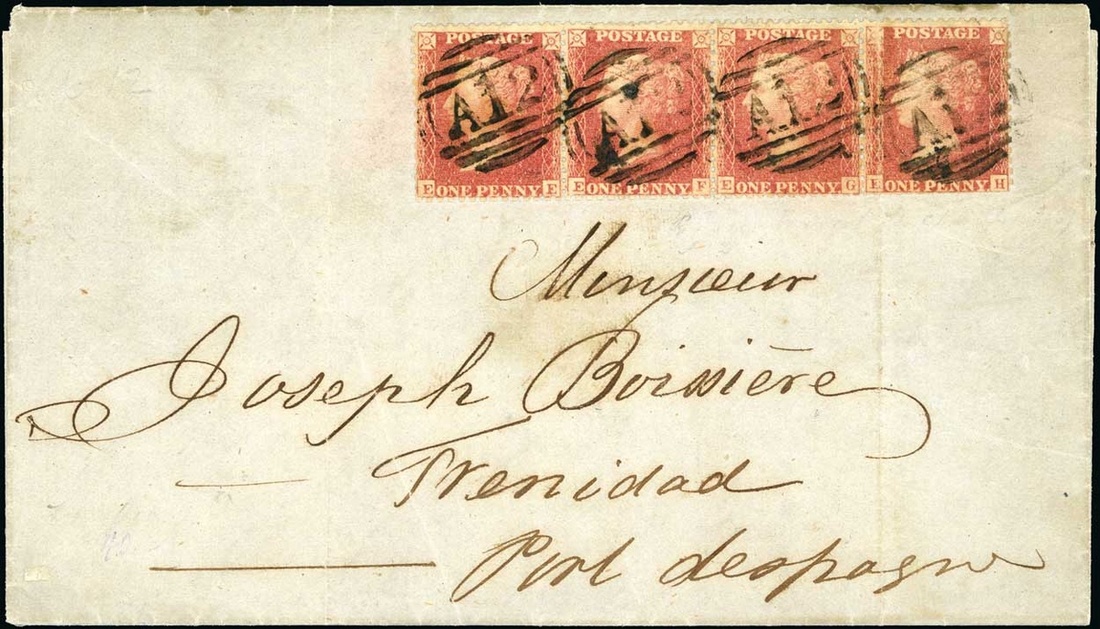 POSTAGE POSTAGE POSTAGE POSTAGE
A12 A1 A12 A1
E ONE PENNY E E ONE PENNY F E ONE PENNY G E ONE PENNY H
Monsieur
Joseph Boissière
Trenidad
Port despagne